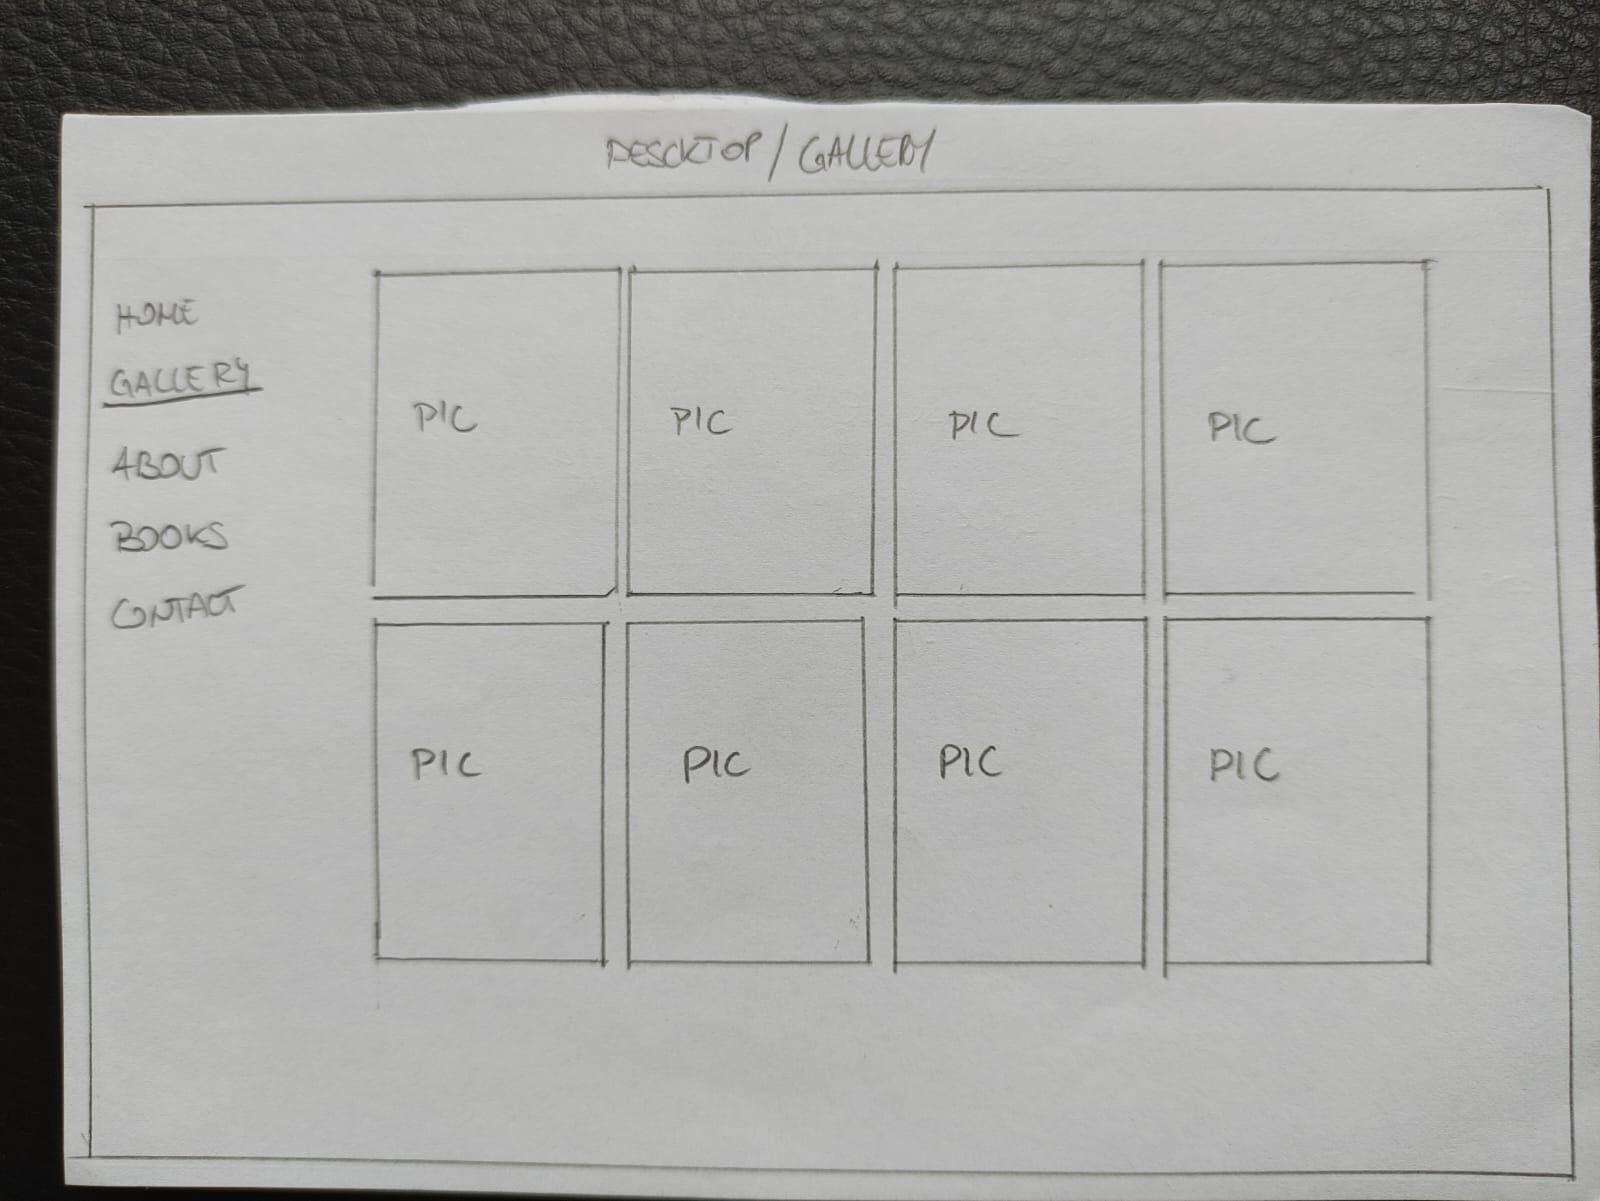 DESCKTOP / GALLERY
HOME
GALLERY
ABOUT
BOOKS
CONTACT
PIC PIC PIC PIC
PIC PIC PIC PIC